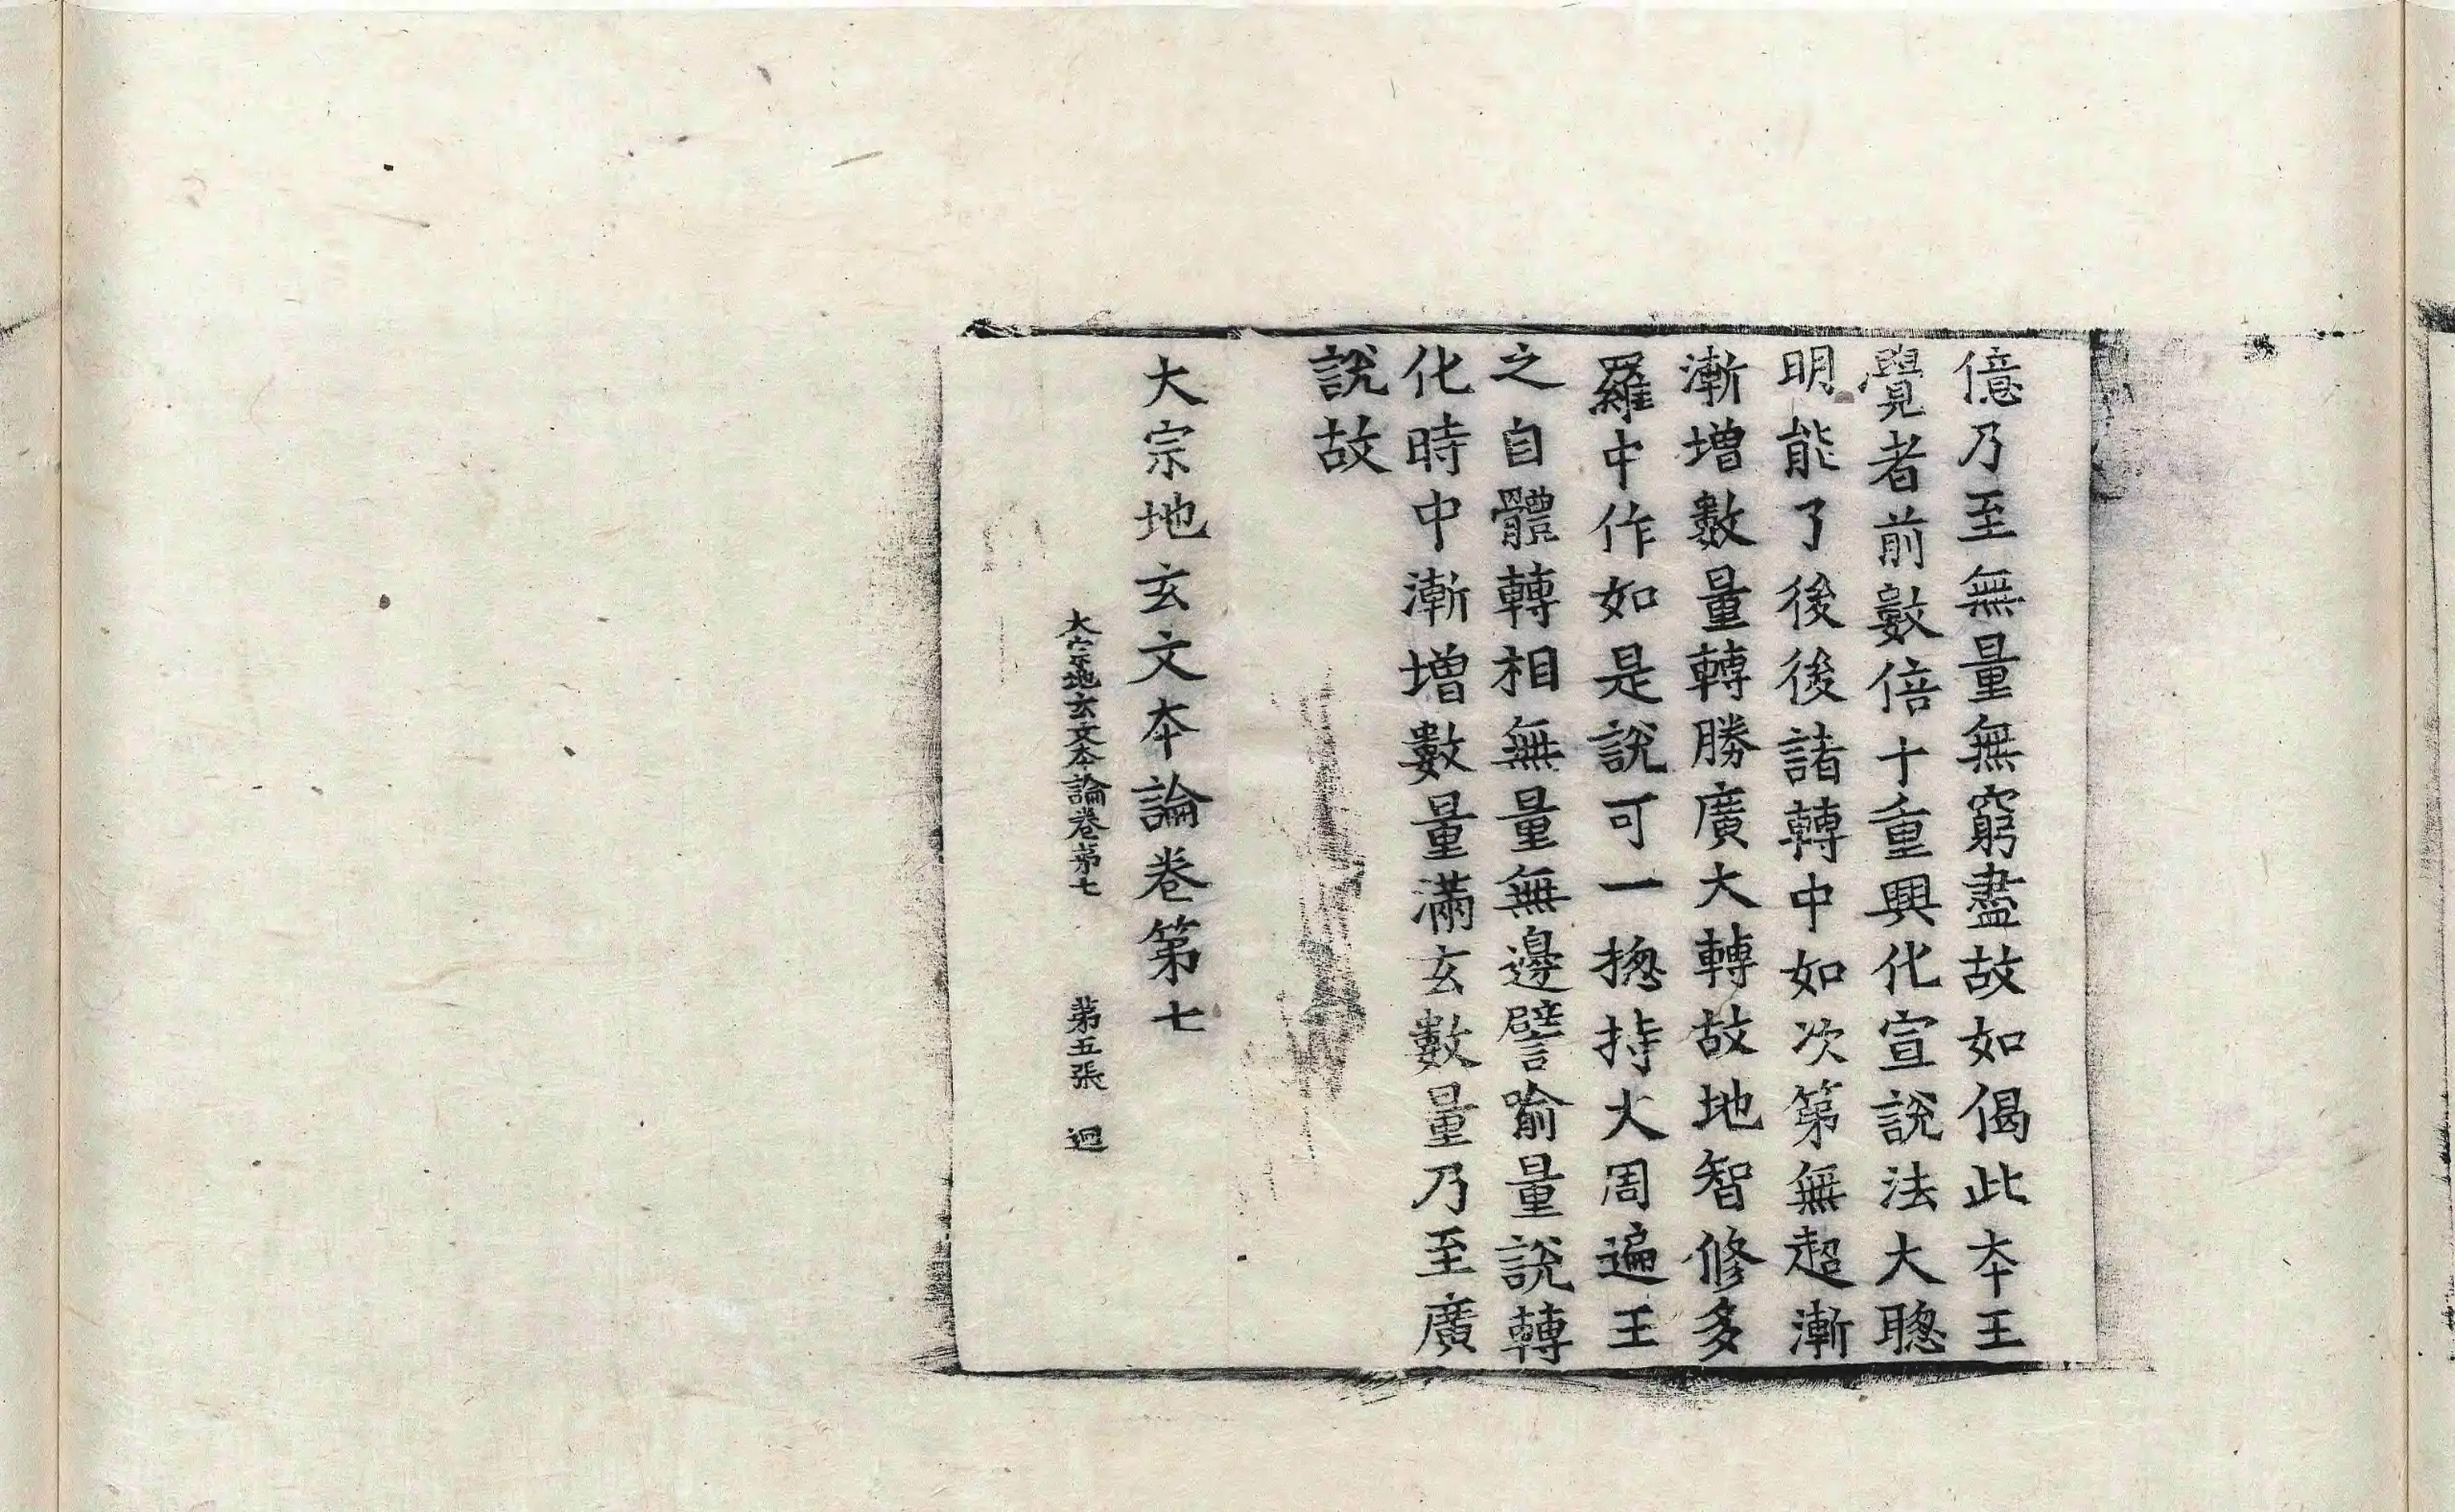 億乃至無量無窮盡故如偈此夲王
覺者前數倍十重興化宣說法大聦
明能了後後諸轉中如次第無超漸
漸增數量轉勝廣大轉故地智修多
羅中作如是說可一揔持大周遍王
之自體轉相無量無邊譬喻量說轉
化時中漸增數量滿玄數量乃至廣
說故
大宗地玄文夲論卷第七
大宗地玄文夲論卷第七 第五張 迴